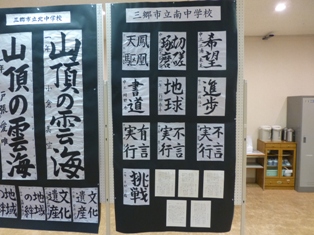 三郷市立北中学校
山頂の雲海
山頂の雲海
地域の絆
地域の絆
文化遺産
文化遺産
三郷市立南中学校
希望
切磋琢磨
鳳凰天駆
進歩
地球
書道
不言実行
不言実行
有言実行
挑戦